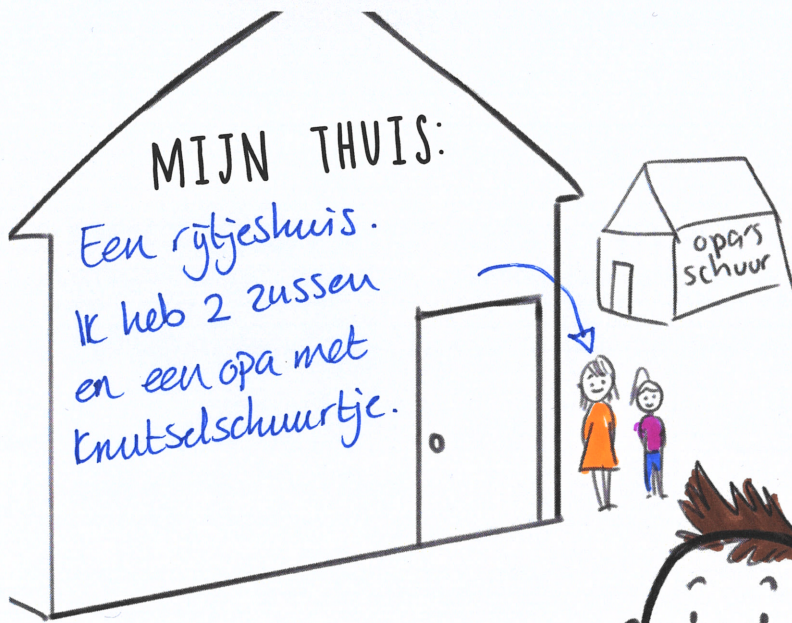 MIJN THUIS:
Een rijtjeshuis.
Ik heb 2 zussen
en een opa met
knutselschuurtje.
opa's
schuur